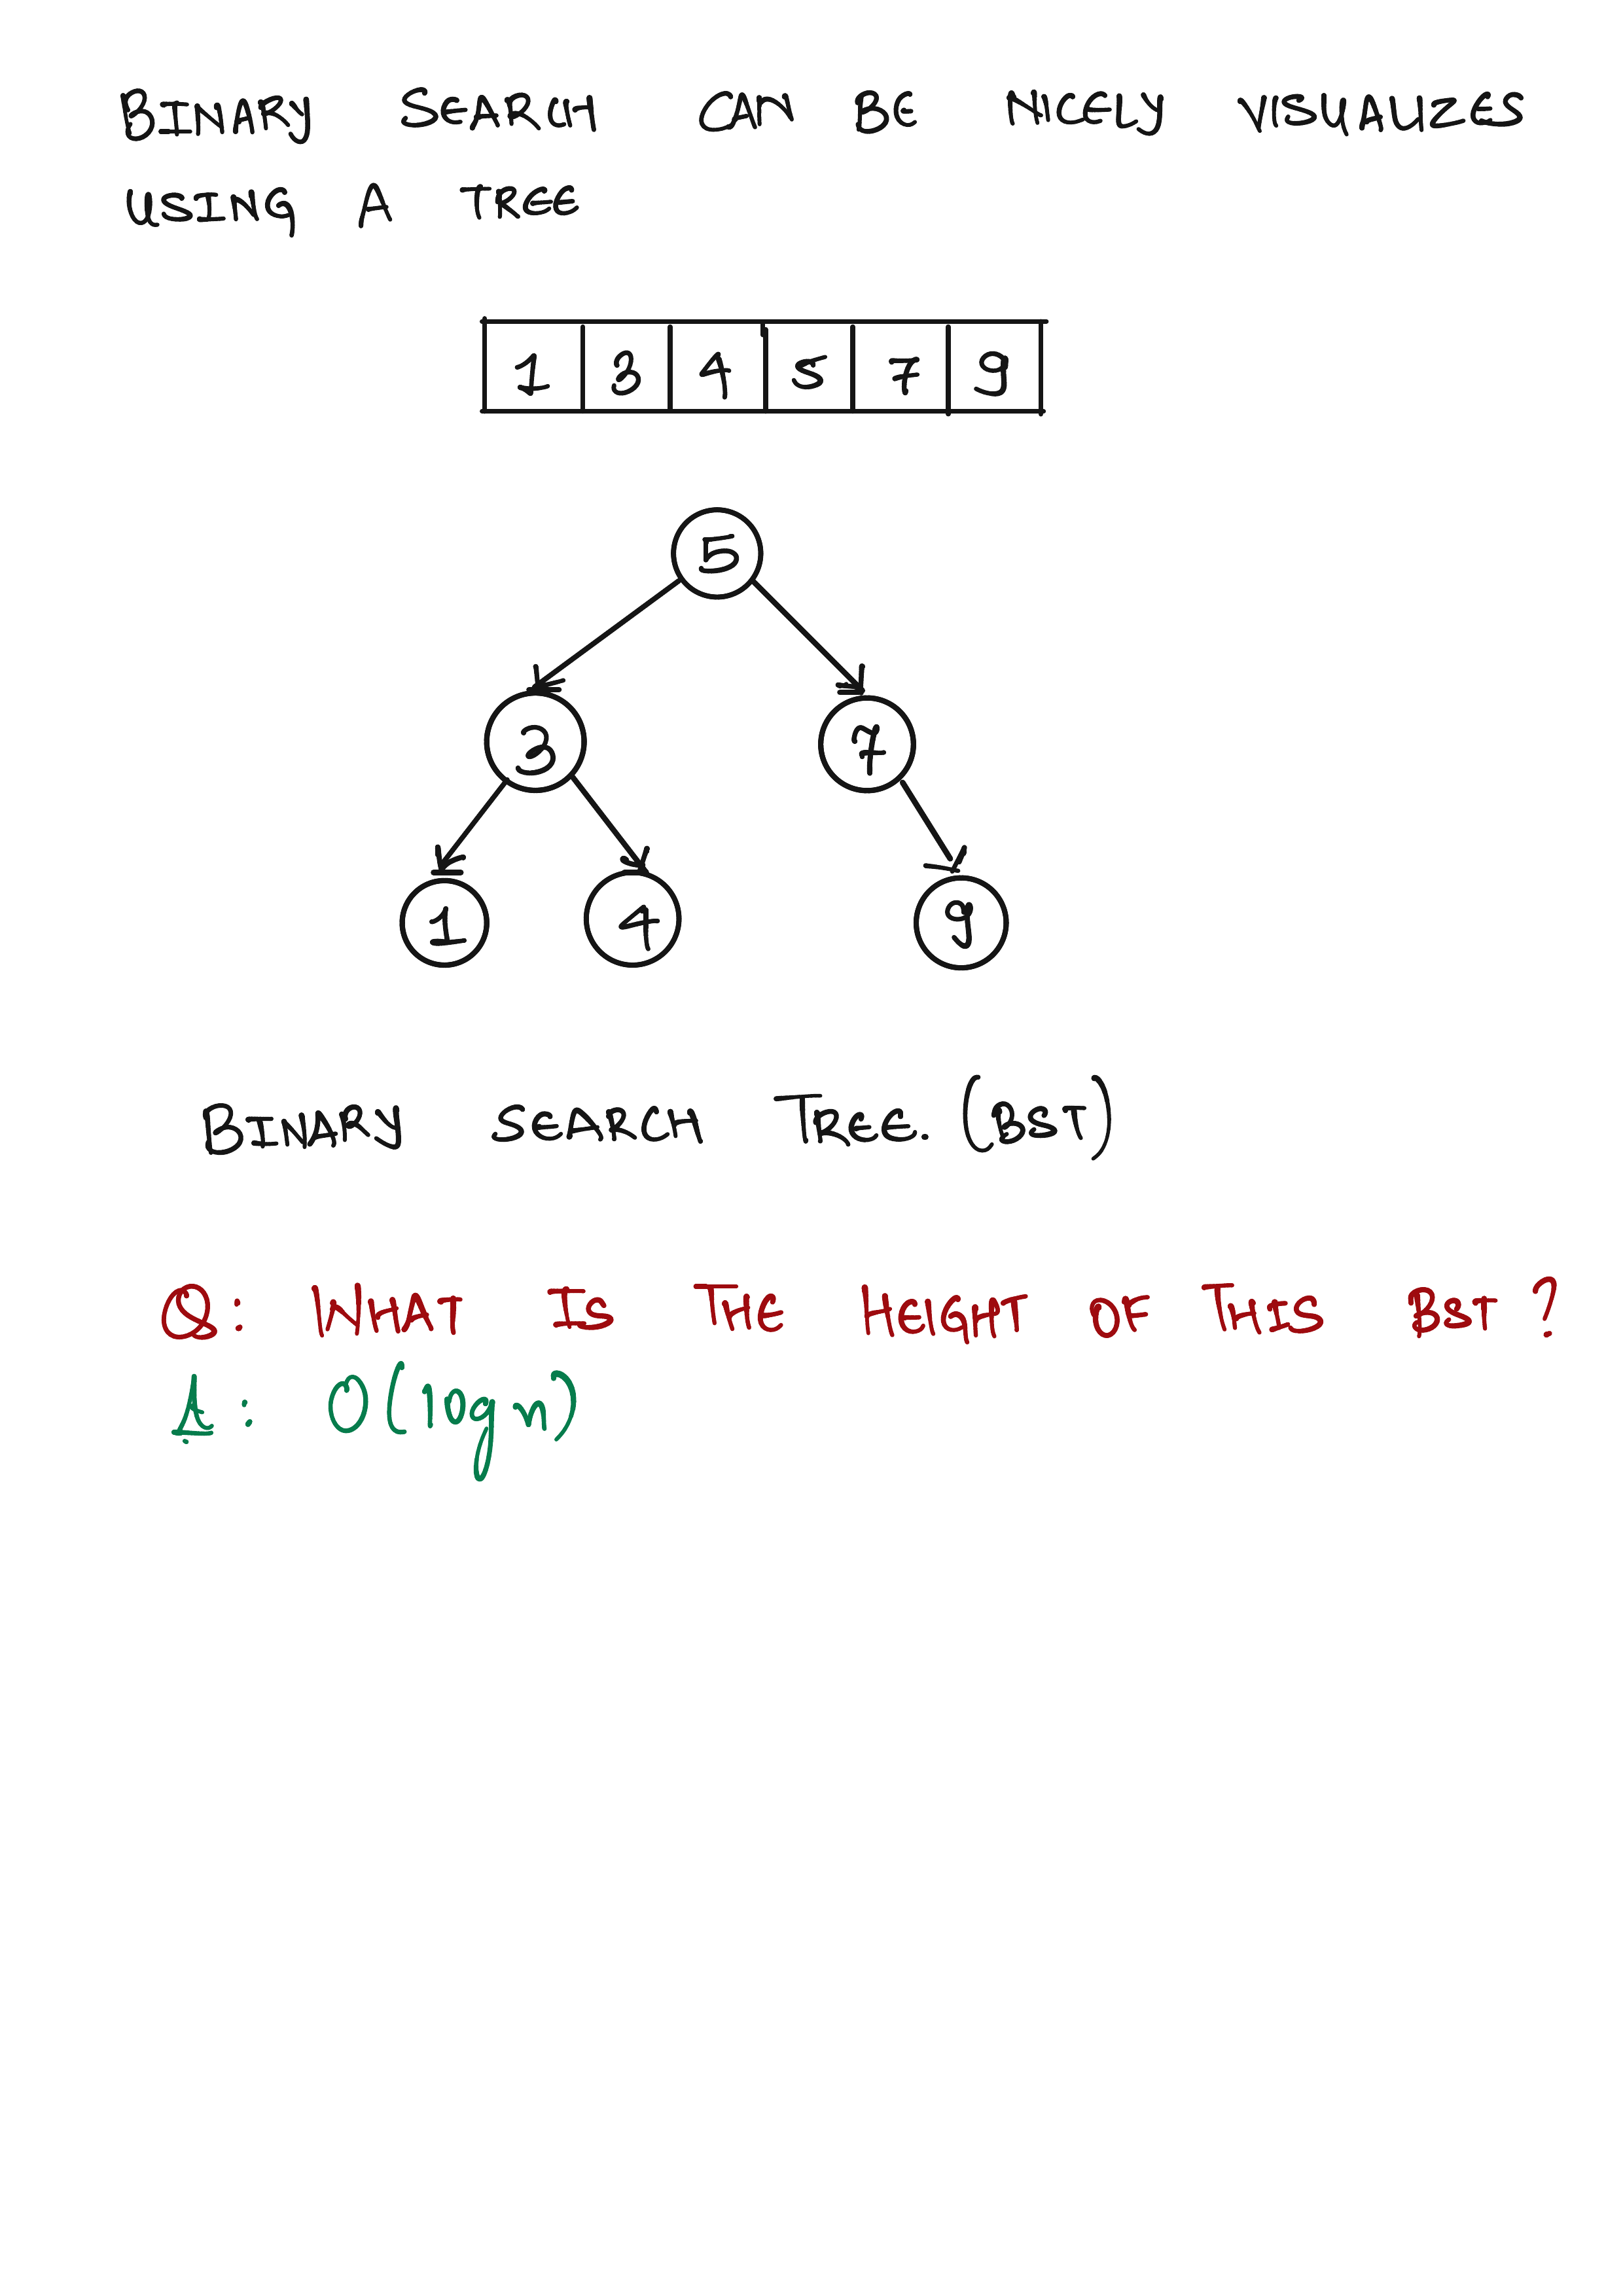 BINARY SEARCH CAN BE NICELY VISUALIZES
USING A TREE
1 3 4 5 7 9
5
3 7
1 4 9
BINARY SEARCH TREE. (BST)
Q: WHAT IS THE HEIGHT OF THIS BST?
A: O(log n)